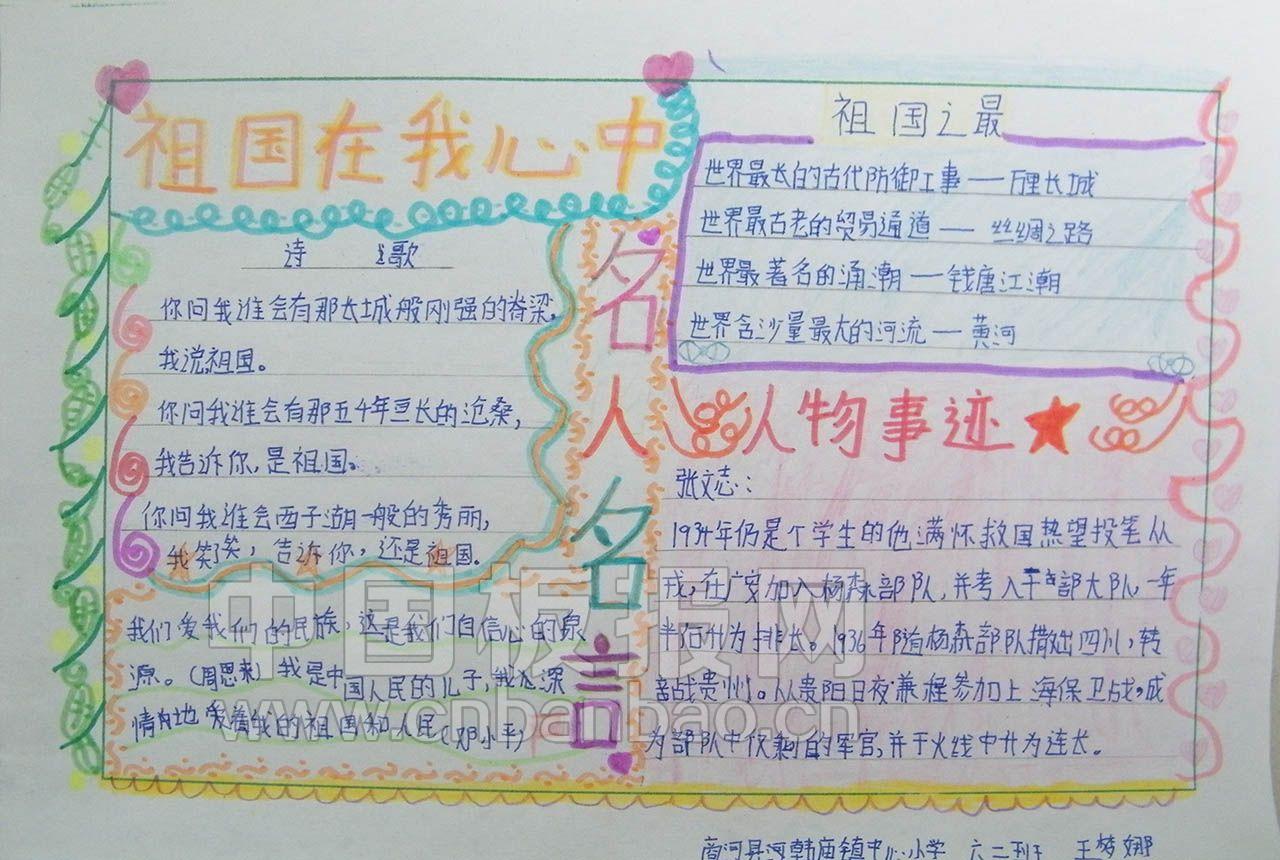 祖国在我心中
诗 歌
你问我谁会有那长城般刚强的脊梁，
我说祖国。
你问我谁会有那五千年亘长的沧桑，
我告诉你，是祖国。
你问我谁会西子湖一般的秀丽，
我笑笑，告诉你，还是祖国。
名人名言
我们爱我们的民族，这是我们自信心的泉
源。（周恩来）我是中国人民的儿子，我深
情地爱着我的祖国和人民（邓小平）
祖国之最
世界最长的古代防御工事——万里长城
世界最古老的贸易通道——丝绸之路
世界最著名的涌潮——钱唐江潮
世界含沙量最大的河流——黄河
人物事迹
张文志：
1934年仍是个学生的他满怀救国热望投笔从
戎，在广安加入杨森部队，并考入干部大队，一年
半后升为排长。1936年随杨森部队撤出四川，转
战贵州。从贵阳日夜兼程参加上海保卫战，成
为部队中仅剩的军官，并于火线中升为连长。
中国板报网
www.cnbanbao.cn
商河县河韩庙镇中心小学 六二班 王梦娜